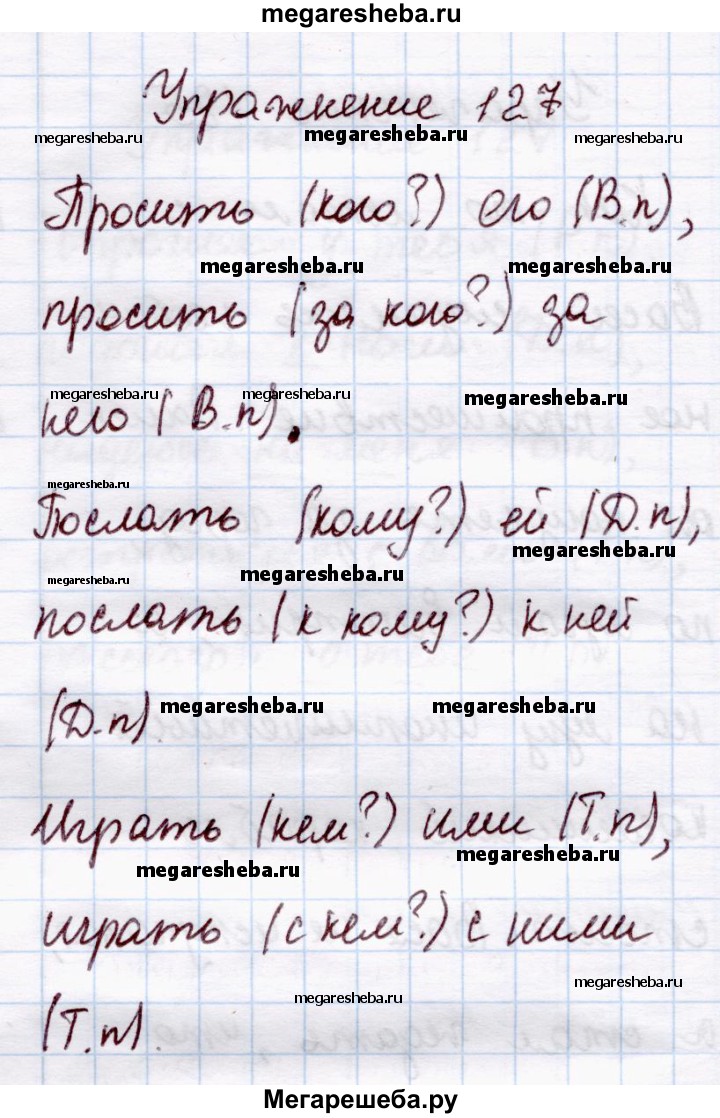 megaresheba.ru
Упражнение 127
megaresheba.ru megaresheba.ru megaresheba.ru
Просить (кого?) его (В.п),
megaresheba.ru megaresheba.ru
просить (за кого?) за
megaresheba.ru megaresheba.ru megaresheba.ru
него (В.п).
megaresheba.ru
Послать (кому?) ей (Д.п),
megaresheba.ru
megaresheba.ru megaresheba.ru
послать (к кому?) к ней
(Д.п). megaresheba.ru megaresheba.ru
Играть (кем?) ими (Т.п),
megaresheba.ru megaresheba.ru
играть (с кем?) с ними
megaresheba.ru megaresheba.ru
(Т.п).
Мегарешеба.ру